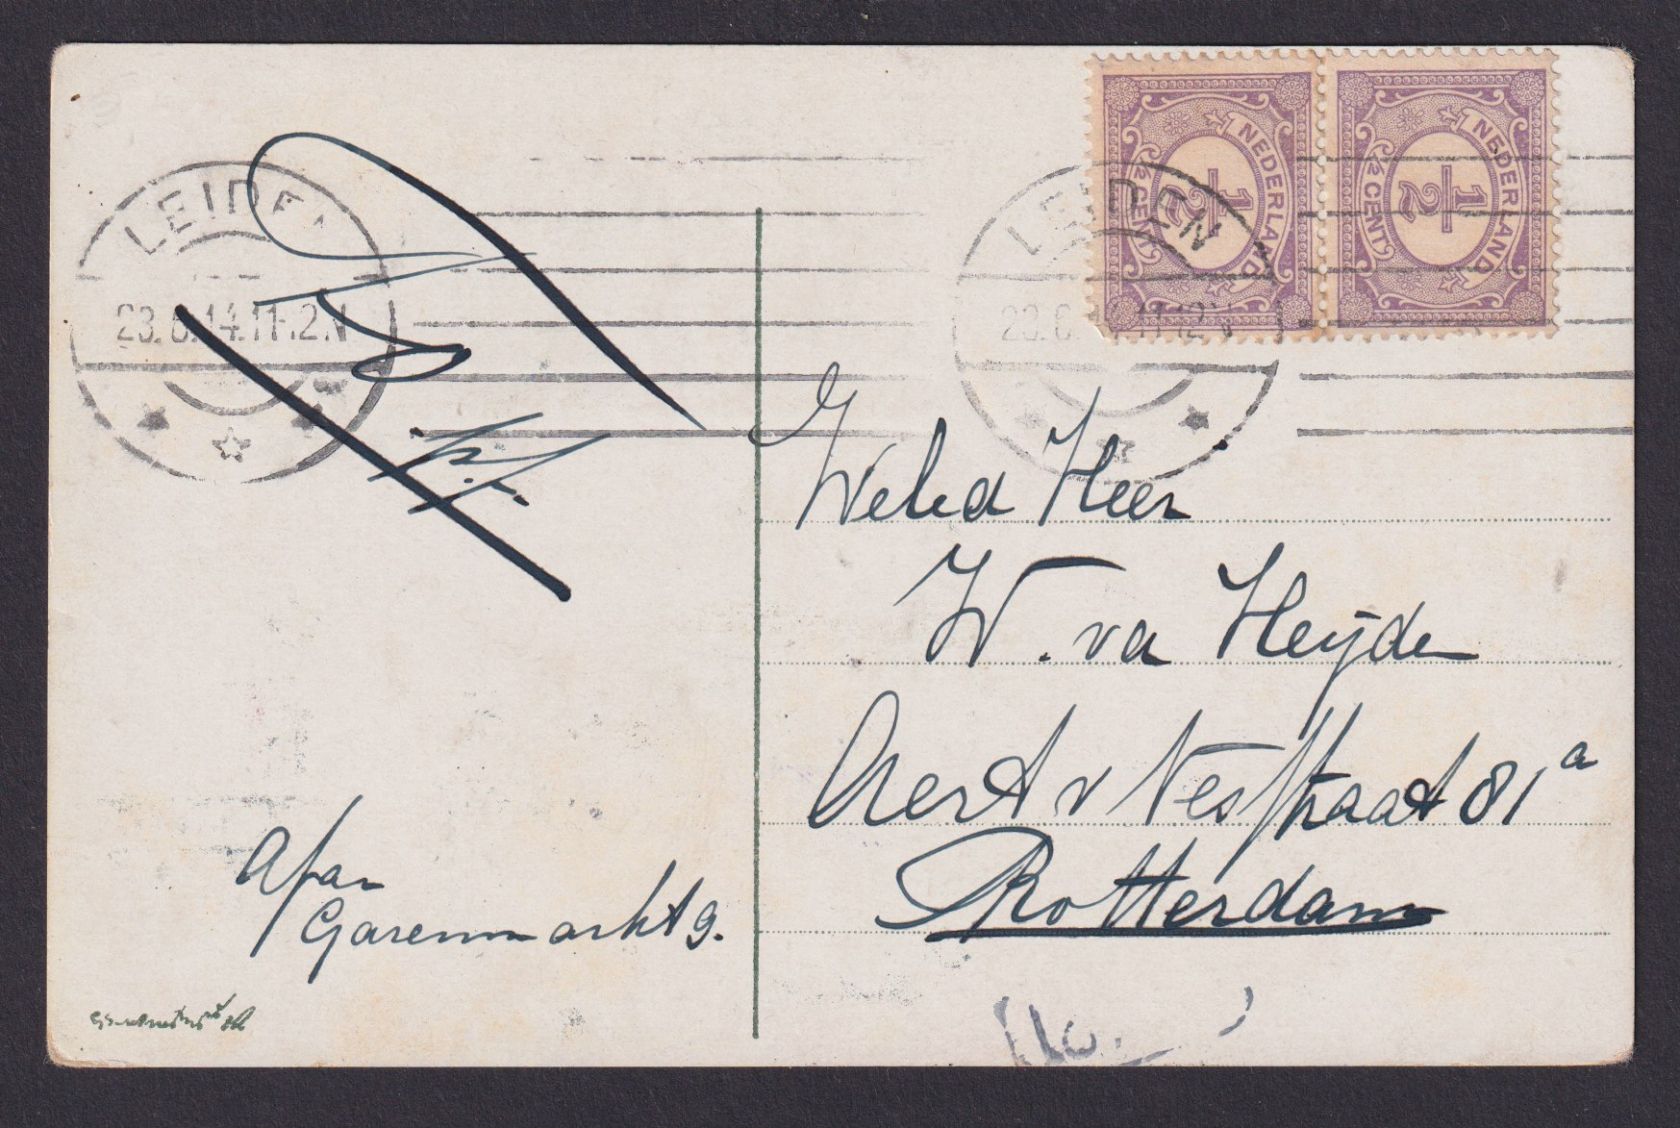 LEIDEN
23.6.14.11-12N
LEIDEN
23.6.14.11-12N
NEDERLAND
1/2
1/2 CENT
NEDERLAND
1/2
1/2 CENT
Weled Heer
W. va Heyde
Aert v Nesstraat 81a
Rotterdam
Afzr
Garenmarkt 9.